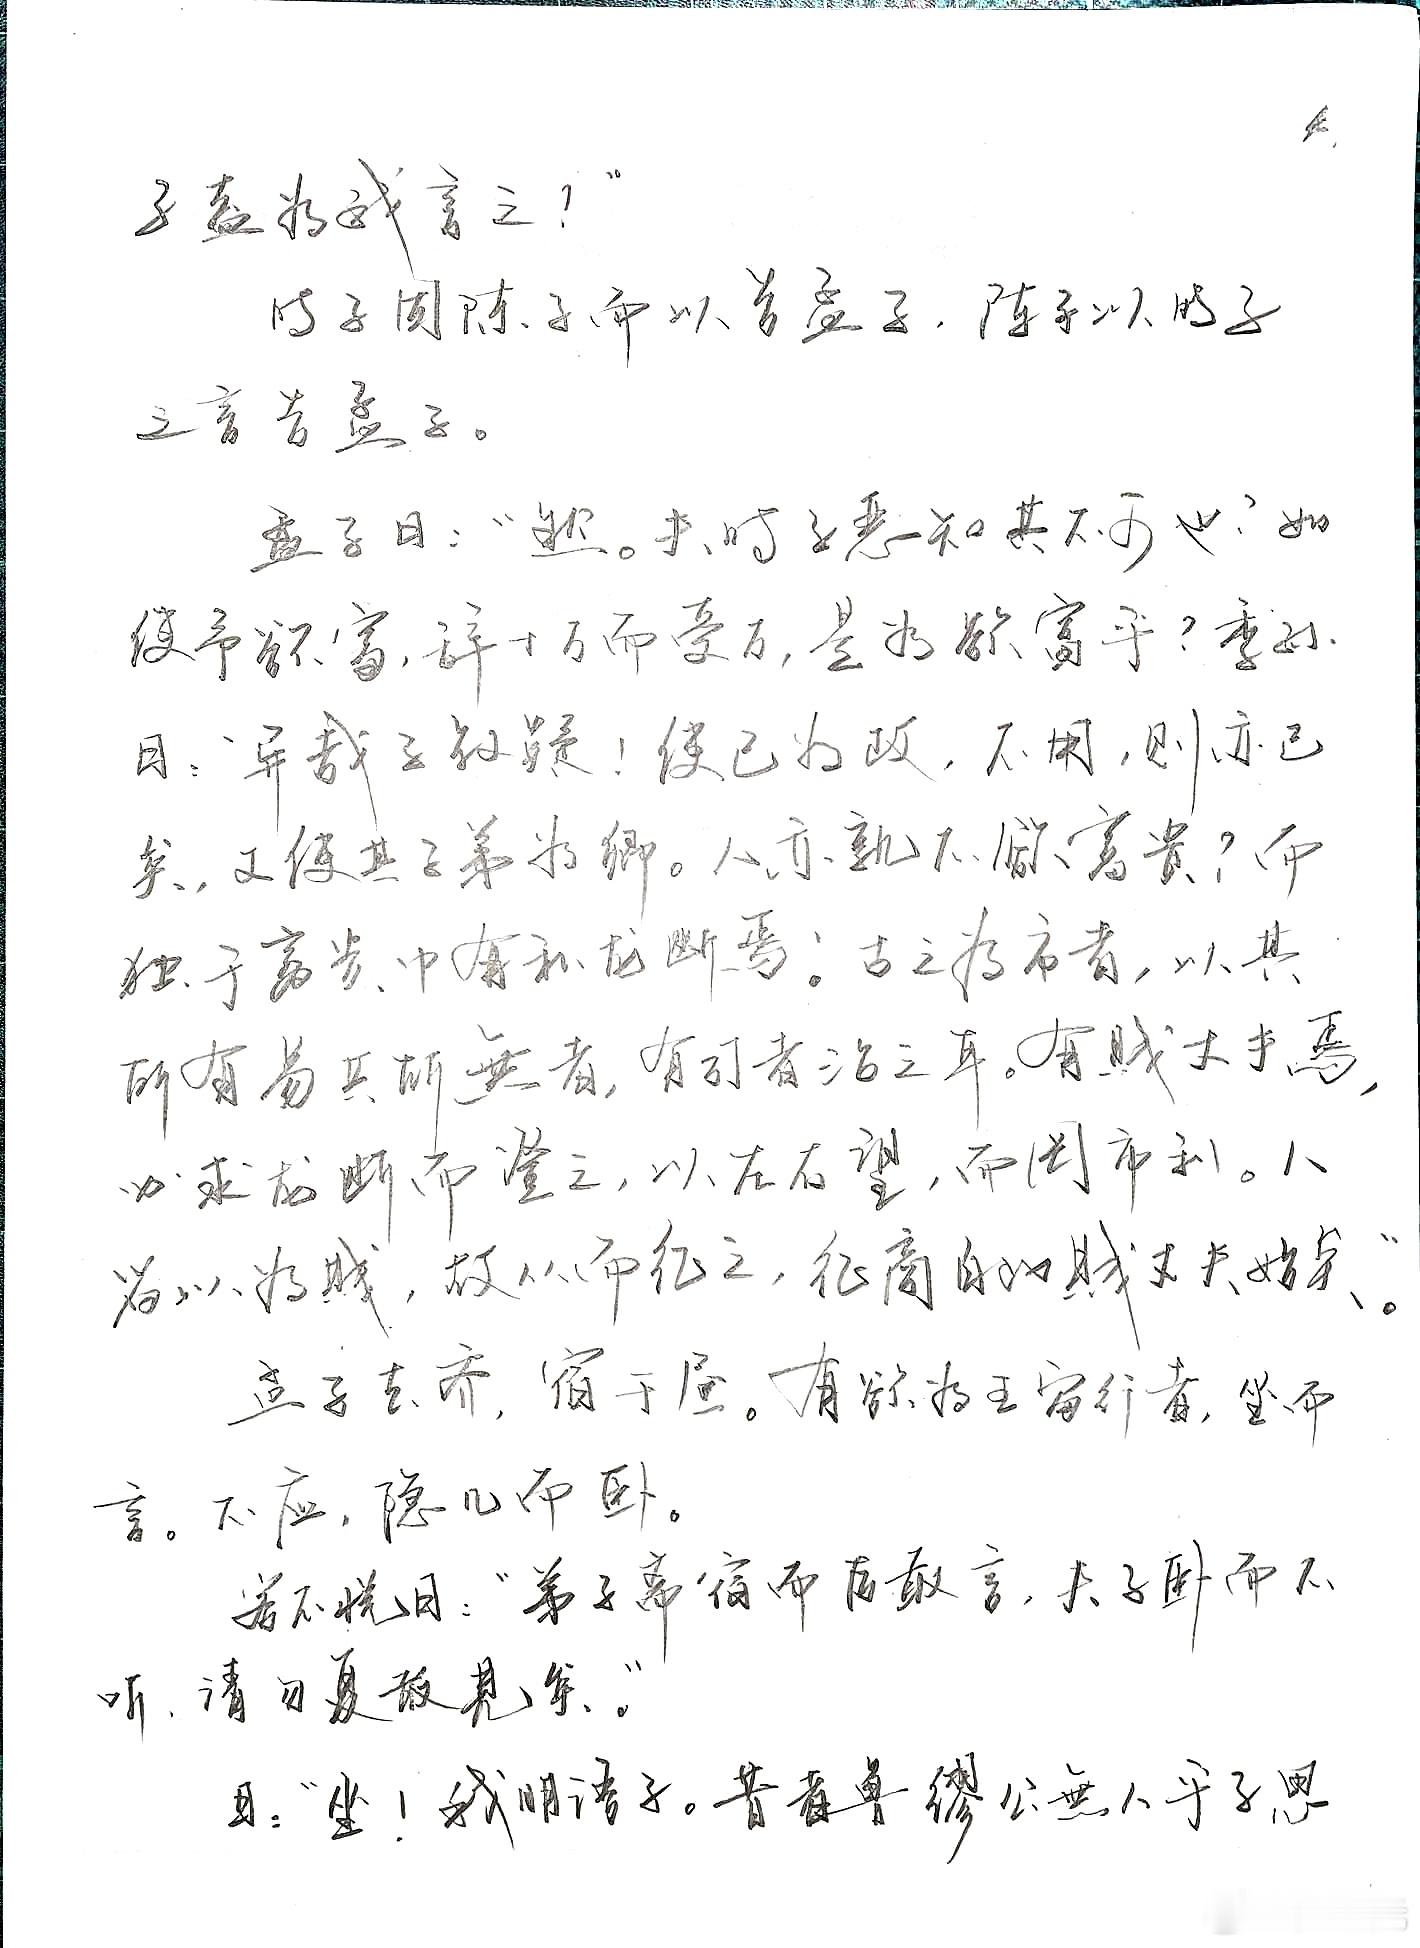 子盍为我言之？”
时子因陈子而以告孟子，陈子以时子
之言告孟子。
孟子曰：“然。夫时子恶知其不可也？如
使予欲富，辞十万而受万，是为欲富乎？季孙
曰：‘异哉子叔疑！使己为政，不用，则亦已
矣，又使其子弟为卿。人亦孰不欲富贵？而
独于富贵中有私龙断焉。’古之为市者，以其
所有易其所無者，有司者治之耳。有贱丈夫焉，
必求龙断而登之，以左右望，而罔市利。人
皆以为贱，故从而征之，征商自此贱丈夫始矣”。
孟子去齐，宿于昼。有欲为王留行者，坐而
言。不应，隐几而卧。
客不悦曰：“弟子齊宿而后敢言，夫子卧而不
听，请勿复敢見矣。”
曰：“坐！我明语子。昔者鲁繆公無人乎子思